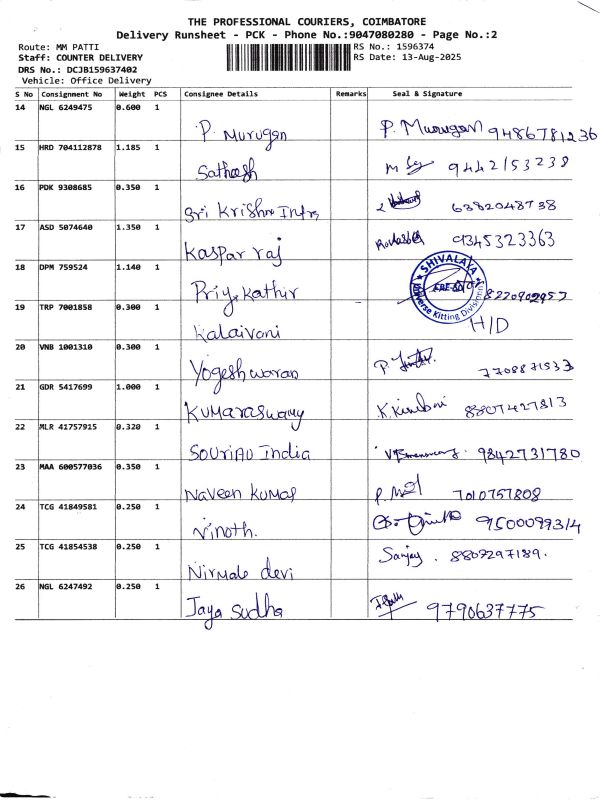 THE PROFESSIONAL COURIERS, COIMBATORE
Delivery Runsheet - PCK - Phone No.:9047080280 - Page No.:2
Route: MM PATTI RS No.: 1596374
Staff: COUNTER DELIVERY RS Date: 13-Aug-2025
DRS No.: DCJB159637402
Vehicle: Office Delivery
S No Consignment No Weight PCS Consignee Details Remarks Seal & Signature
14 NGL 6249475 0.600 1
P. Murugan P. Murugan 9486781236
15 HRD 704112878 1.185 1
Satheesh 9442153238
16 PDK 9308685 0.350 1
Sri Krishna Infra 6382048738
17 ASD 5074640 1.350 1
Kaspar raj 9345323363
18 DPM 759524 1.140 1
Priya kathir SHIVALAYA 8220902957
19 TRP 7001858 0.300 1
Kalaivani H/D
20 VNB 1001310 0.300 1
Yogeshwaran 7708871533
21 GDR 5417699 1.000 1
Kumaraswamy 8807427813
22 MLR 41757915 0.320 1
SOURIAU India 9842731780
23 MAA 600577036 0.350 1
Naveen Kumar 7010757808
24 TCG 41849581 0.250 1
Vinoth. 9500099314
25 TCG 41854538 0.250 1
Nirmala devi Sanjay. 8807297189.
26 NGL 6247492 0.250 1
Jaya Sudha 9790637775